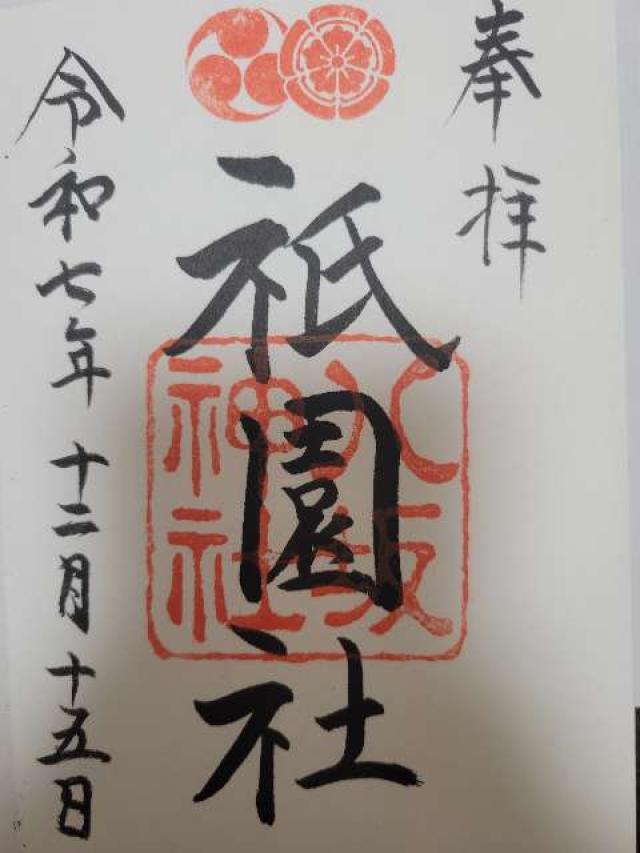 奉拝
祇園社
八坂
神社
令和七年 十二月 十五日